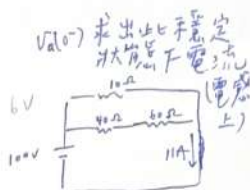 Va(0⁻) 求出此穩定
狀態下電流
(電感上)
10Ω
6V
40Ω 60Ω
100V
11A